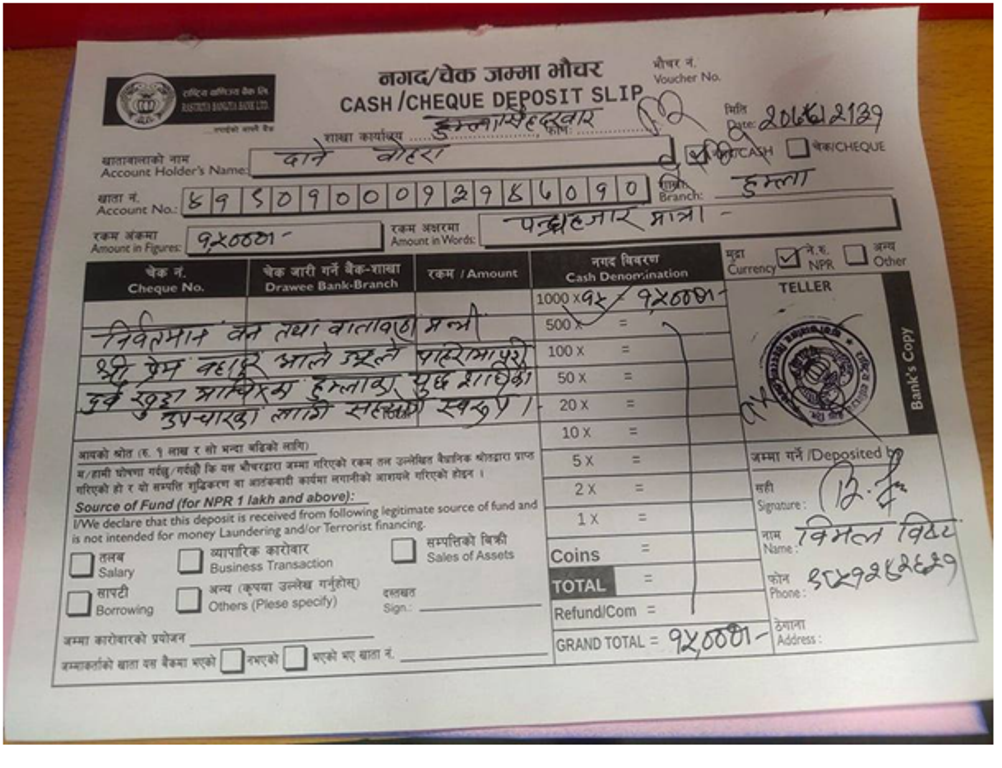 राष्ट्रिय वाणिज्य बैंक लि.
RASTRIYA BANIJYA BANK LTD.
...तपाईको आफ्नै बैंक
नगद/चेक जम्मा भौचर
CASH/CHEQUE DEPOSIT SLIP
भौचर नं.
Voucher No.
शाखा कार्यालय हुम्ला सिंहदरबार फोन:
मिति
Date:
खातावालाको नाम
Account Holder's Name: दाने वोहरा
CASH चेक/CHEQUE
खाता नं.
Account No.:
शाखा
Branch: हुम्ला
रकम अंकमा
Amount in Figures: १५०००।-
रकम अक्षरमा
Amount in Words: पन्ध्र हजार मात्र।-
चेक नं.
Cheque No.
चेक जारी गर्ने बैंक-शाखा
Drawee Bank-Branch
रकम / Amount
नगद विवरण
Cash Denomination
मुद्रा
Currency
ने.रु.
NPR
अन्य
Other
1000 x १५ = १५०००।-
500 x =
100 x =
50 x =
20 x =
10 x =
5 x =
2 x =
1 x =
Coins =
TOTAL =
Refund/Com =
GRAND TOTAL = १५,०००।-
निवर्तमान वन तथा वातावरण मन्त्री
श्री प्रेम बहादुर आले
हुम्लाका
उपचारका लागि सहयोग स्वरुप ।
TELLER
Bank's Copy
आयको श्रोत (रु. १ लाख र सो भन्दा बढिको लागि)
म/हामी घोषणा गर्दछु/गर्दछौं कि यस भौचरद्वारा जम्मा गरिएको रकम तल उल्लेखित वैधानिक श्रोतद्वारा प्राप्त
गरिएको हो र यो सम्पत्ति शुद्धिकरण वा आतंकवादी कार्यमा लगानीको आशयले गरिएको होइन ।
Source of Fund (for NPR 1 lakh and above):
I/We declare that this deposit is received from following legitimate source of fund and
is not intended for money Laundering and/or Terrorist financing.
तलब
Salary
व्यापारिक कारोबार
Business Transaction
सम्पत्तिको बिक्री
Sales of Assets
सापटी
Borrowing
अन्य (कृपया उल्लेख गर्नुहोस्)
Others (Plese specify)
दस्तखत
Sign.:
जम्मा कारोबारको प्रयोजन
जम्माकर्ताको खाता यस बैंकमा भएको नभएको भएको भए खाता नं.
जम्मा गर्ने /Deposited by
सही
Signature :
नाम
Name : विमल विष्ट
फोन
Phone :
ठेगाना
Address :